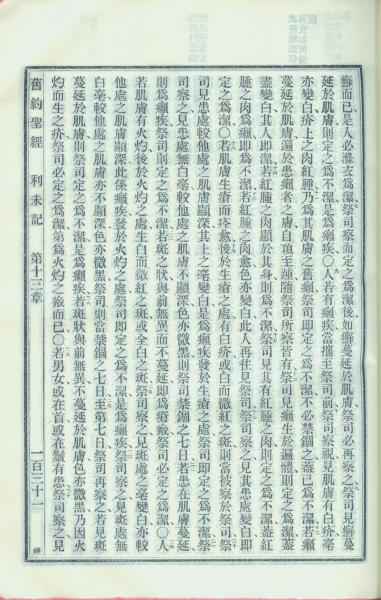 癬而已、是人必滌衣爲潔、祭司察而定之爲潔後、如癬蔓延於肌膚、祭司必再察之、祭司見癬蔓
延於肌膚、則定之爲不潔、是爲癩疾、〇人若有癩疾、當攜至祭司前、祭司察視、見肌膚有白疥、毫
亦變白、疥上之肉紅腫、乃爲其肌膚之舊癩、祭司即定之爲不潔、不必禁錮之、蓋已爲不潔、若癩
蔓延於肌膚、遍於患癩者之膚、自頂至踵、隨祭司所察皆有、祭司見癩生於遍體、則定之爲潔、蓋
盡變白、其人即潔、若紅腫之肉顯於其身、則爲不潔、祭司見其有紅腫之肉、則定之爲不潔、蓋紅
腫之肉爲癩、即爲不潔、若紅腫之肉愈、色亦變白、此人再往見祭司、祭司察之、見其患處變白、即
定之爲潔、〇若肌膚生瘡而痊愈、後於生瘡之處有白疥、或白而微紅之斑、則當被察於祭司、祭
司見患處較他處之肌膚顯深、其上之毫變白、是爲癩疾發於生瘡之處、祭司即定之爲不潔、祭
司察之、見患處無白毫、較他處之肌膚不顯深、色亦微黑、則祭司禁錮之七日、若患在肌膚蔓延、
則爲癩疾、祭司則定之爲不潔、若斑之狀與前無異、而不蔓延、即爲瘡瘢、祭司必定之爲潔、〇人
若肌膚有火灼、後於火灼之處生白而微紅之斑、或全白之斑、祭司察之、見斑處之毫變白、亦較
他處之肌膚顯深、此係癩疾發於火灼之處、祭司即定之爲不潔、是爲癩疾、祭司察之、見斑處無
白毫、較他處之肌膚亦不顯深、色亦微黑、祭司則當禁錮之七日、至第七日祭司再察之、若見斑
蔓延於肌膚、則祭司定之爲不潔、是爲癩疾、若斑狀與前無異、不蔓延於肌膚、色亦微黑、乃因火
灼而生之疥、祭司必定之爲潔、第爲火灼之瘢而已、〇若男女或在首或在鬚有患、祭司察之、見
舊約聖經 利未記 第十三章 一百三十一